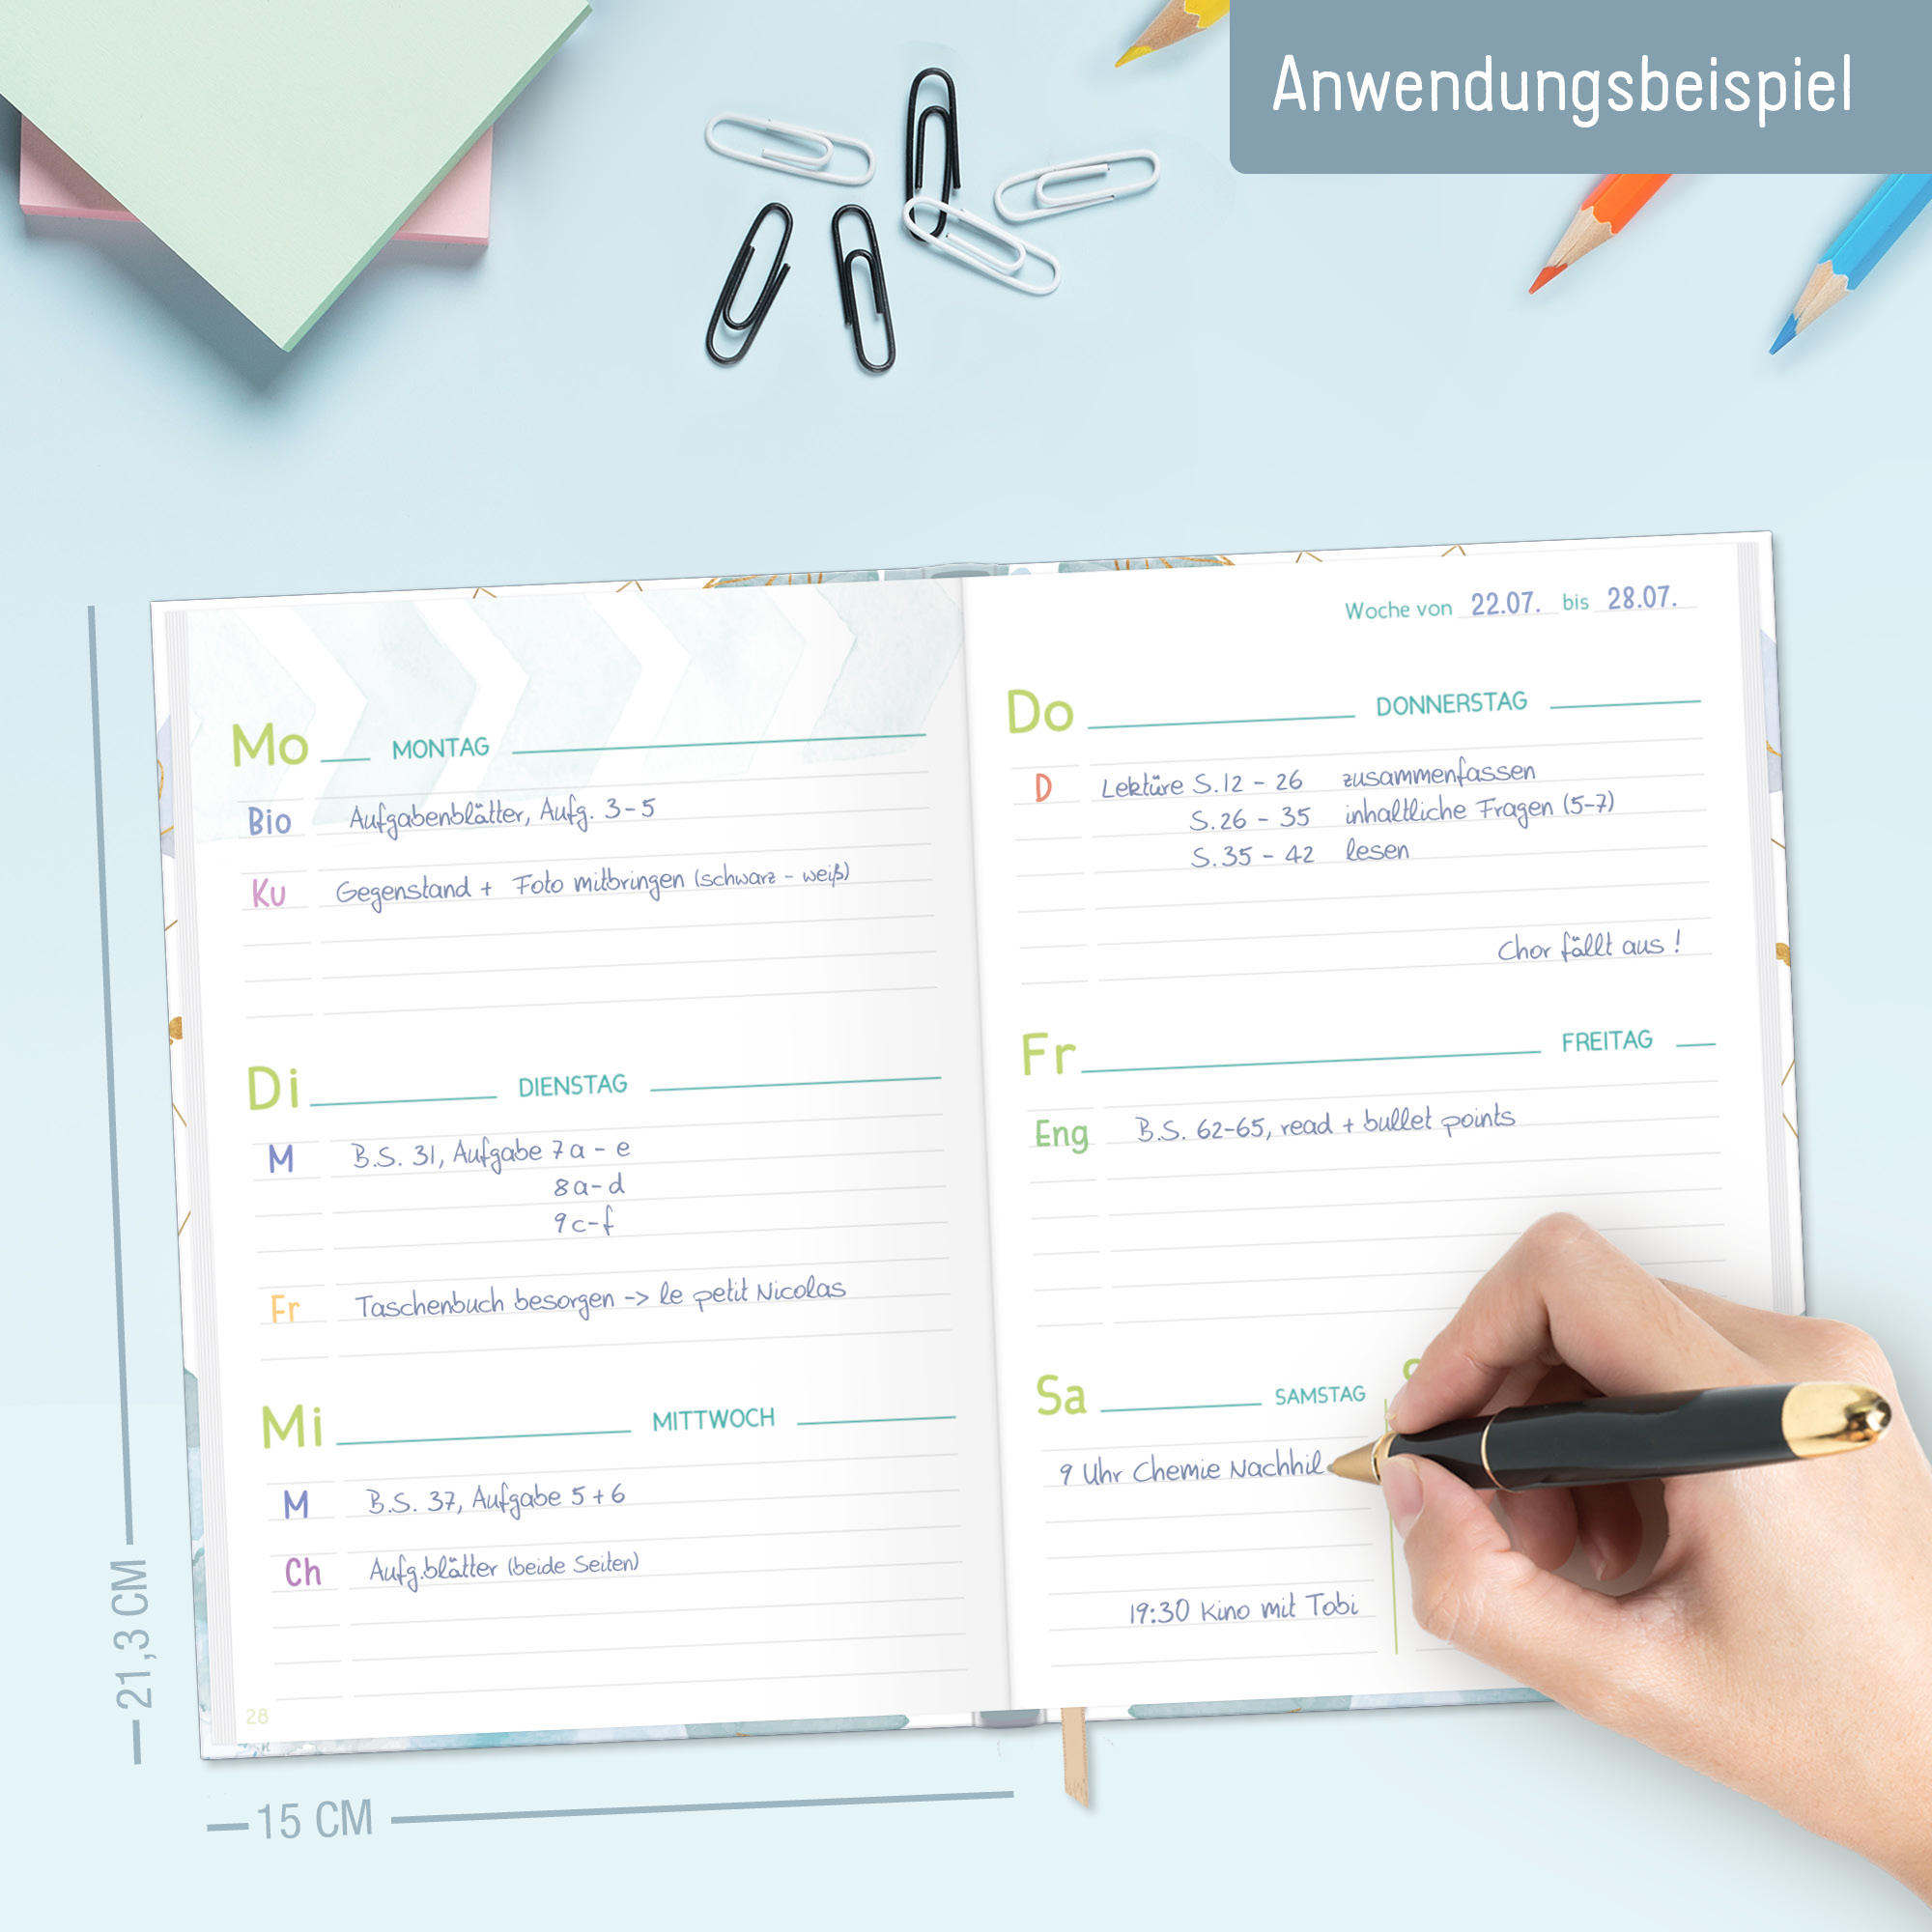 Anwendungsbeispiel
Mo MONTAG
Bio Aufgabenblätter, Aufg. 3-5
Ku Gegenstand + Foto mitbringen (schwarz - weiß)
Di DIENSTAG
M B.S. 31, Aufgabe 7a - e
8a-d
9c-f
Fr Taschenbuch besorgen -> le petit Nicolas
Mi MITTWOCH
M B.S. 37, Aufgabe 5+6
Ch Aufg.blätter (beide Seiten)
28
Woche von 22.07. bis 28.07.
Do DONNERSTAG
D Lektüre S.12 - 26 zusammenfassen
S.26 - 35 inhaltliche Fragen (5-7)
S.35 - 42 lesen
Chor fällt aus !
Fr FREITAG
Eng B.S. 62-65, read + bullet points
Sa SAMSTAG
9 Uhr Chemie Nachhil
19:30 Kino mit Tobi
21,3 CM
15 CM